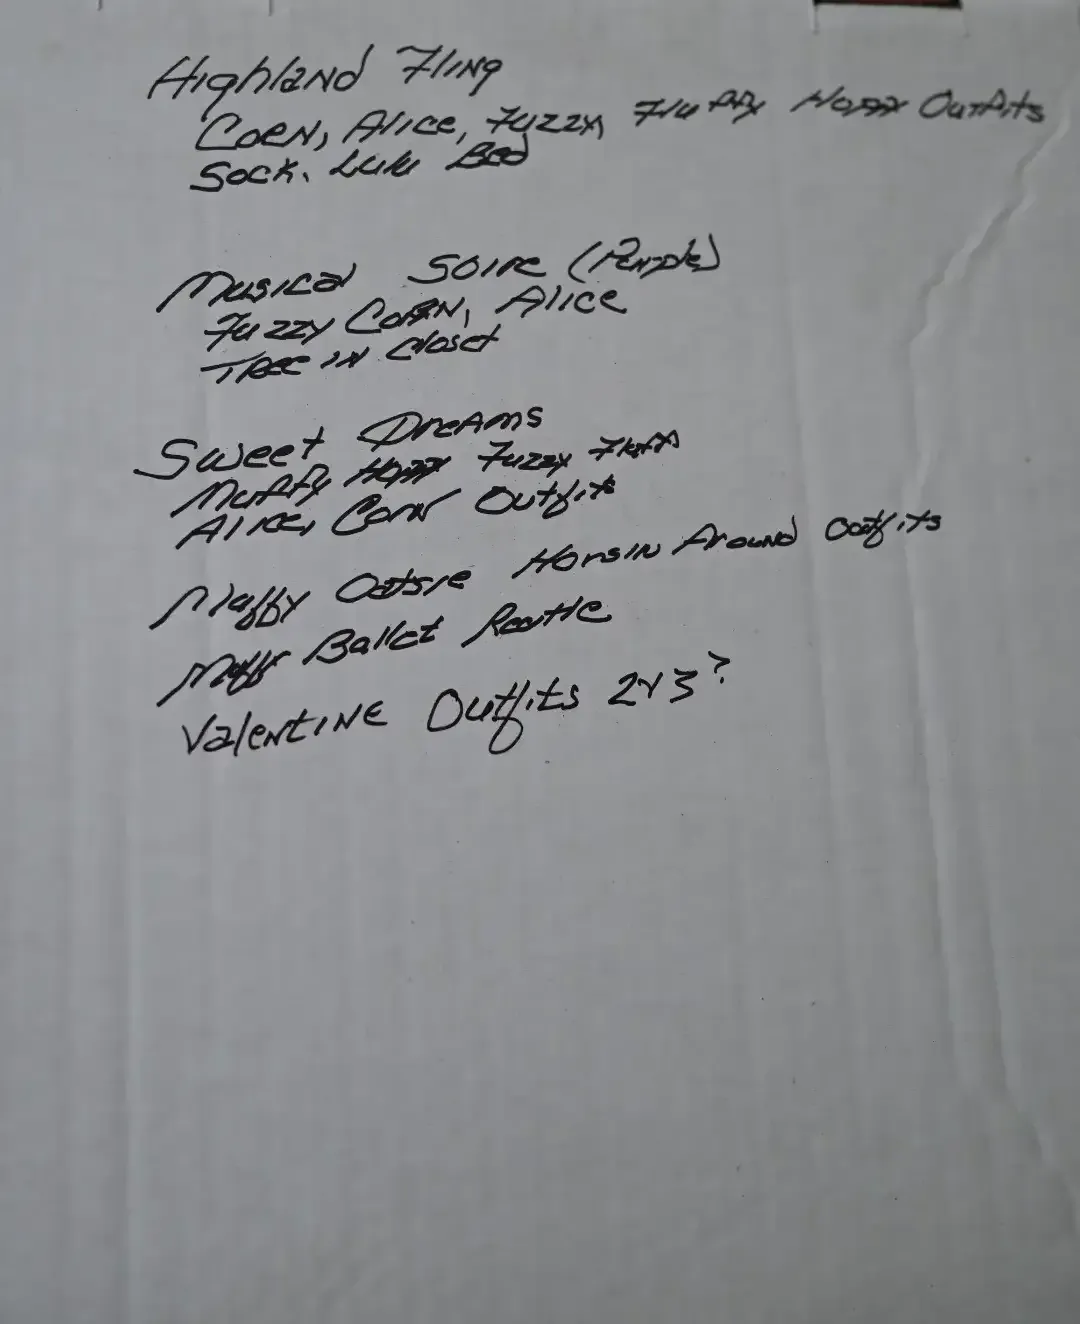 Highland Fling
Coen, Alice, Fuzzy, Fluffy Hoppy Outfits
Sock. Bed
Musical Soire (Purple)
Fuzzy Corn, Alice
Tree in closet
Sweet Dreams
Muffy Hoppy Fuzzy
Alice, Corn Outfits
Muffy Horsin Around outfits
Muffy Ballet
Valentine Outfits 2 3?